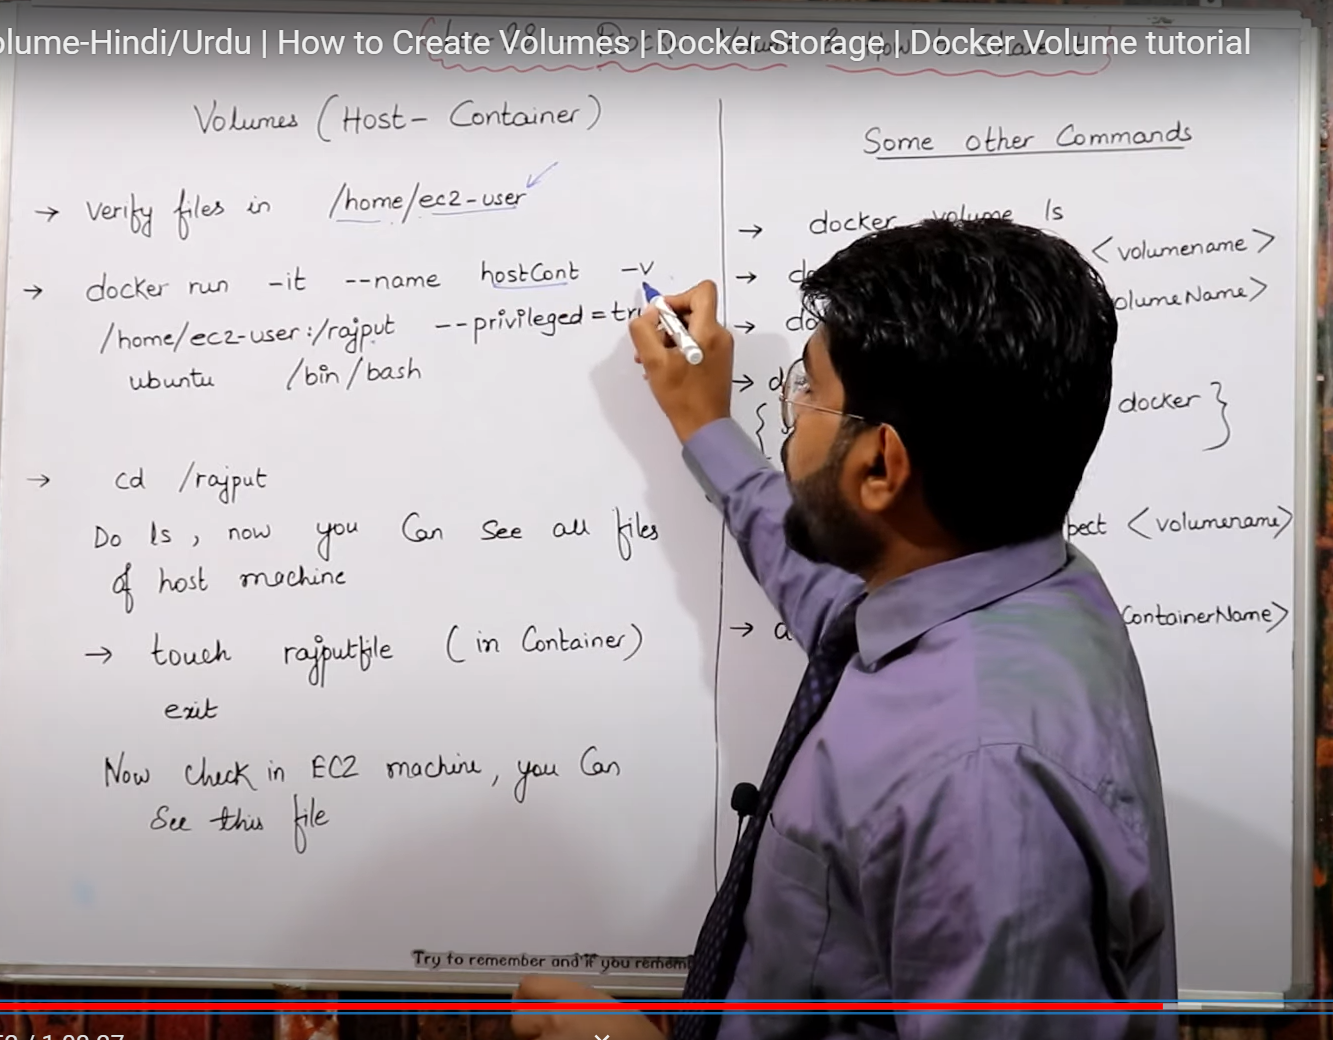 olume-Hindi/Urdu | How to Create Volumes | Docker Storage | Docker Volume tutorial
Volumes (Host- Container)
→ Verify files in /home/ec2-user
→ docker run -it --name hostCont -v
/home/ec2-user:/rajput --privileged=tr
ubuntu /bin/bash
→ cd /rajput
Do ls, now you Can See all files
of host machine
→ touch rajputfile (in Container)
exit
Now Check in EC2 machine, you Can
See this file
Some other Commands
→ docker volume ls
→ <volumename>
→ olumeName>
→
{ docker }
pect <volumename>
→ ContainerName>
Try to remember and if you rememb